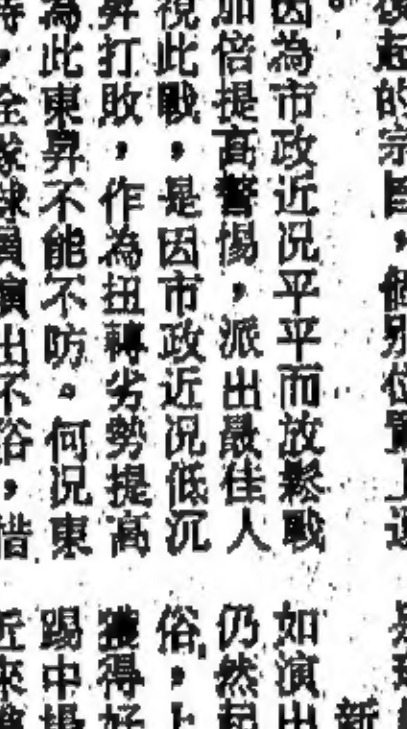 後起的宗旨，個別位置上
因為市政近况平平而放鬆戰
加倍提高警惕，派出最佳人
視此戰，是因市政近况低沉
昇打敗，作為扭轉劣勢提高
為此東昇不能不防。何况東
時，全隊球員演出不俗，惜
新
如演出
仍然起
俗，上
獲得好
踢中場
近來